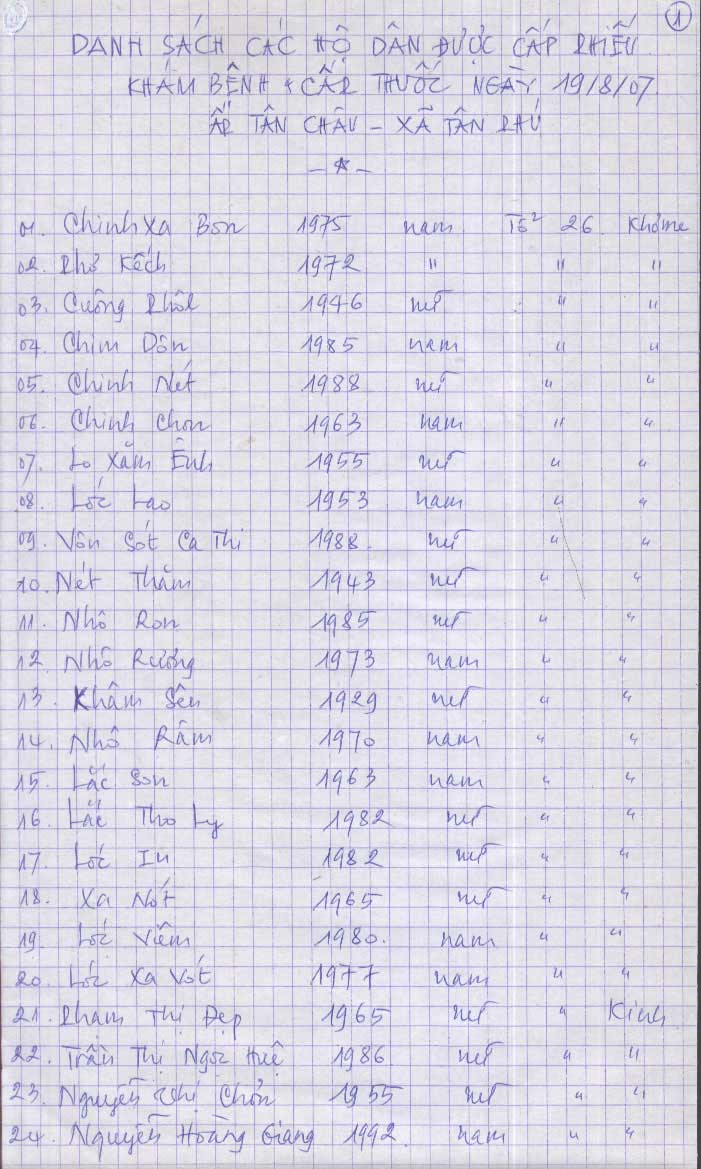 1
DANH SÁCH CÁC HỘ DÂN ĐƯỢC CẤP PHIẾU
KHÁM BỆNH + CẤP THUỐC NGÀY 19/8/07
ẤP TÂN CHÂU - XÃ TÂN PHÚ
-*-
01. Chinh Xa Bon 1975 nam Tổ 26 Khơme
02. Phô Kếch 1972 " " "
03. Cương Phôl 1946 nữ " "
04. Chim Dôn 1985 nam " "
05. Chinh Nét 1988 nữ " "
06. Chinh Chon 1963 nam " "
07. Lo Xăm Ênh 1955 nữ " "
08. Lốc Lao 1953 nam " "
09. Vôn Sót Ca Thi 1988. nữ " "
10. Nét Thăm 1943 nữ " "
11. Nhô Ron 1985 nữ " "
12. Nhô Rương 1973 nam " "
13. Khâm Sên 1929 nữ " "
14. Nhô Râm 1970 nam " "
15. Lắc Son 1963 nam " "
16. Lắc Tho Ly 1982 nữ " "
17. Lốc In 1982 nữ " "
18. Xa Nót 1965 nữ " "
19. Lốc Viêm 1980. nam " "
20. Lốc Xa Vót 1977 nam " "
21. Phạm Thị Đẹp 1965 nữ " Kinh
22. Trần Thị Ngọc Huệ 1986 nữ " "
23. Nguyễn Thị Chổn 1955 nữ " "
24. Nguyễn Hoàng Giang 1992. nam " "